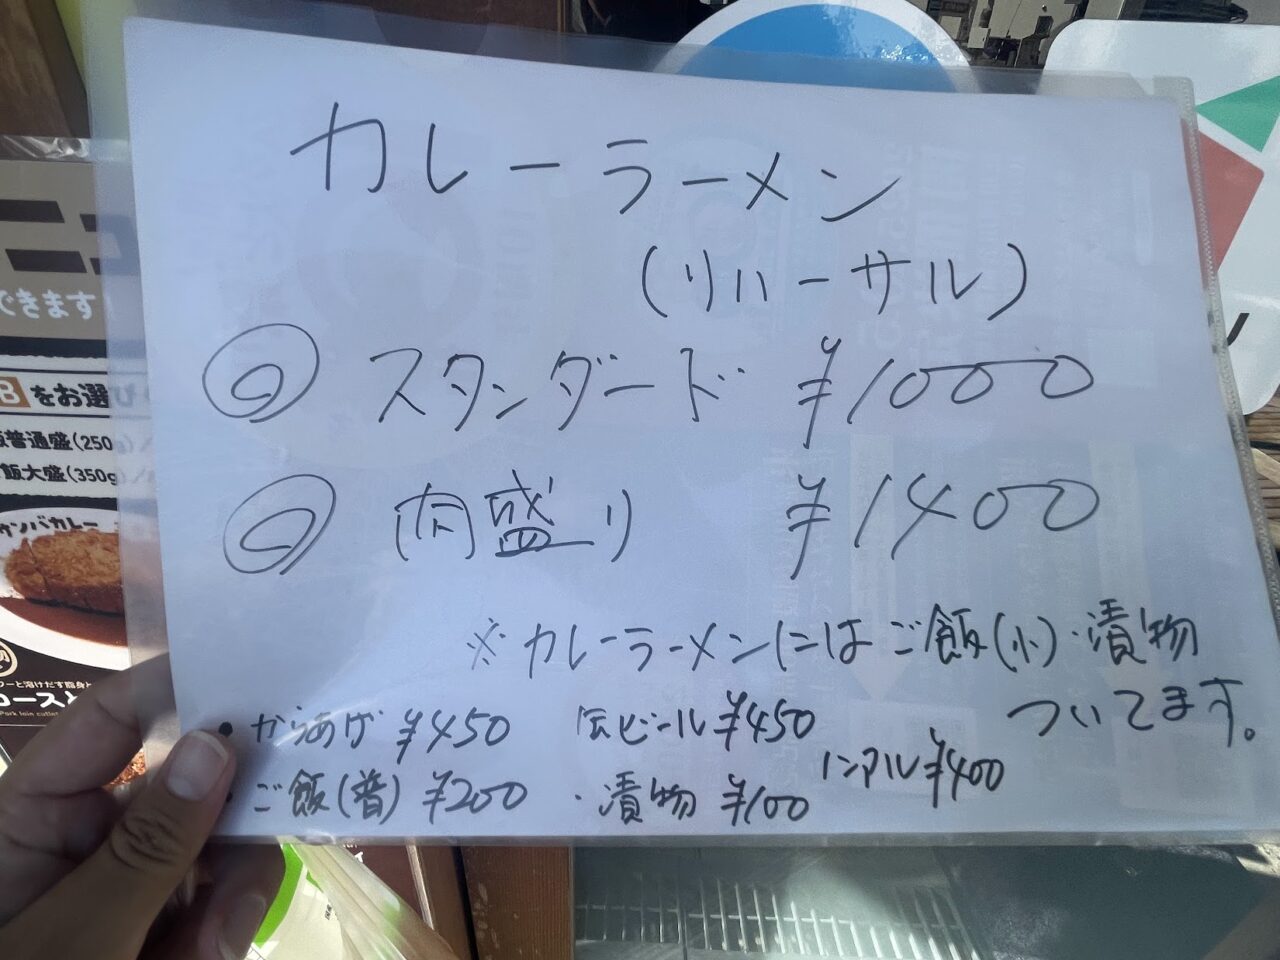 カレーラーメン
(リハーサル)
◎ スタンダード ¥1000
◎ 肉盛り ¥1400
※カレーラーメンにはご飯(小)・漬物
ついてます。
・からあげ ¥450
缶ビール ¥450
ノンアル ¥400
・ご飯(普) ¥200
・漬物 ¥100
できます
B をお選び
普通盛(250g)
飯大盛(350g)
カレー
ロースと
Pork loin cutlet